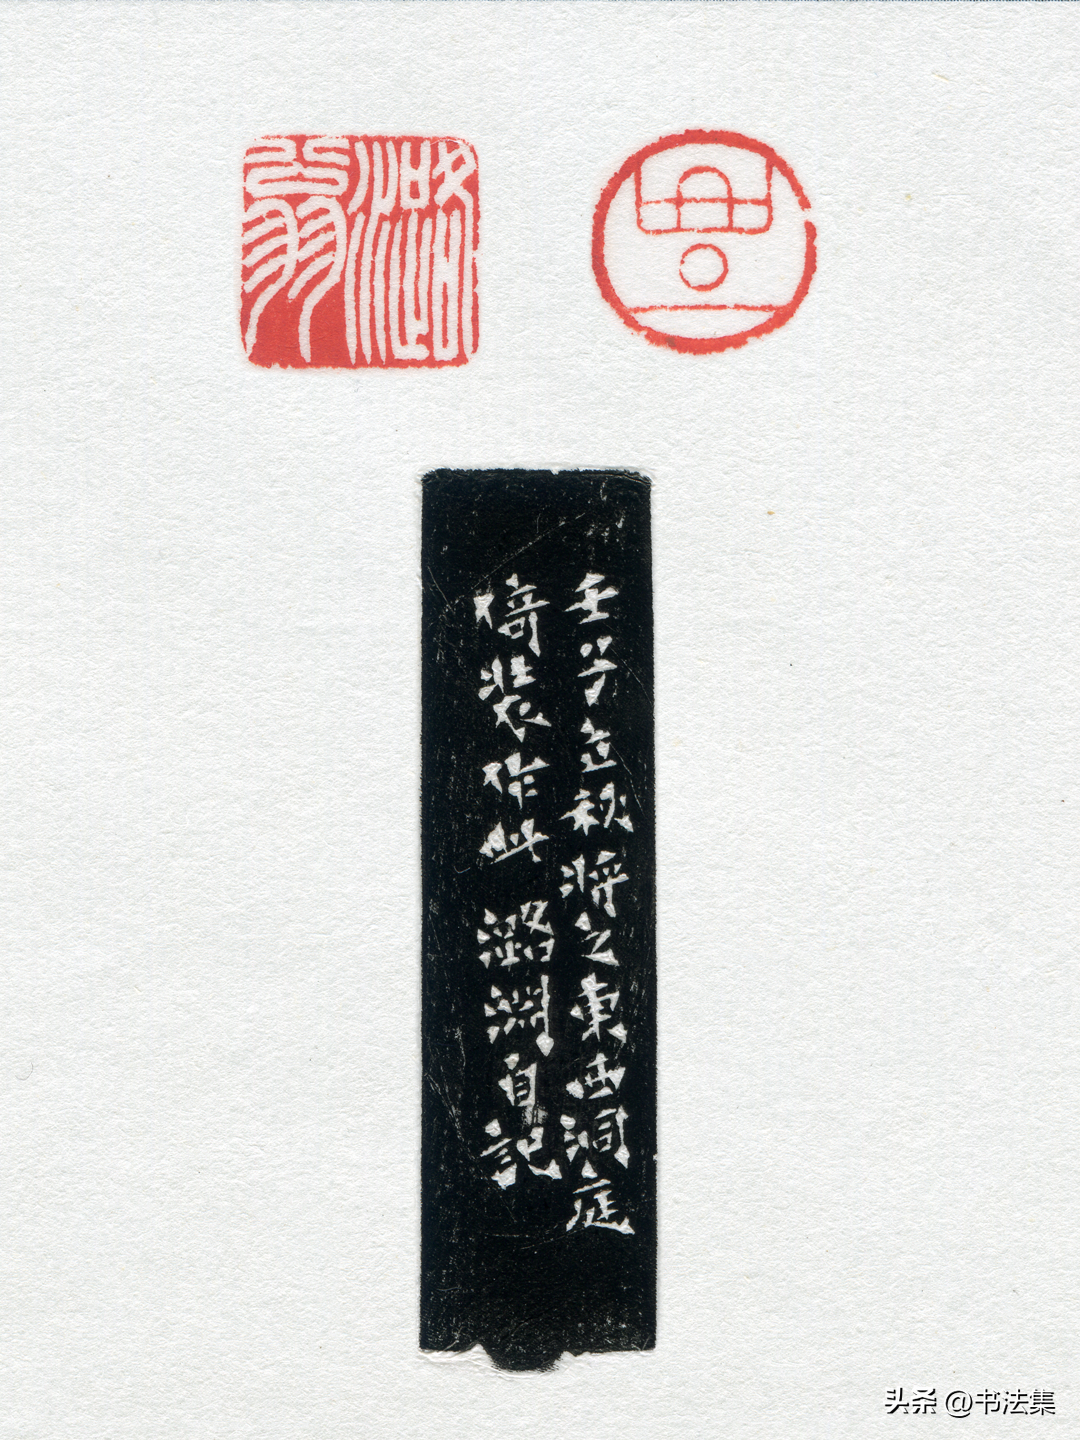 潞翁
壬子立秋將之東西洞庭
倚裝作此 潞淵自記
头条 @书法集